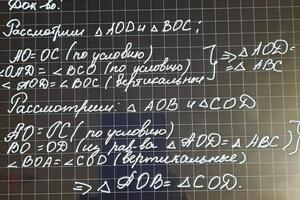 Док-во:
Рассмотрим △AOD и △BOC;
AO = OC (по условию)
∠OAD = ∠BCO (по условию)
∠AOD = ∠BOC (вертикальные
} ⇒ △AOD =
= △ABC
Рассмотрим: △AOB и △COD
AO = OC (по условию)
BO = OD (из рав-ва △AOD = △ABC)
∠BOA = ∠COD (вертикальные)
⇒ △AOB = △COD.